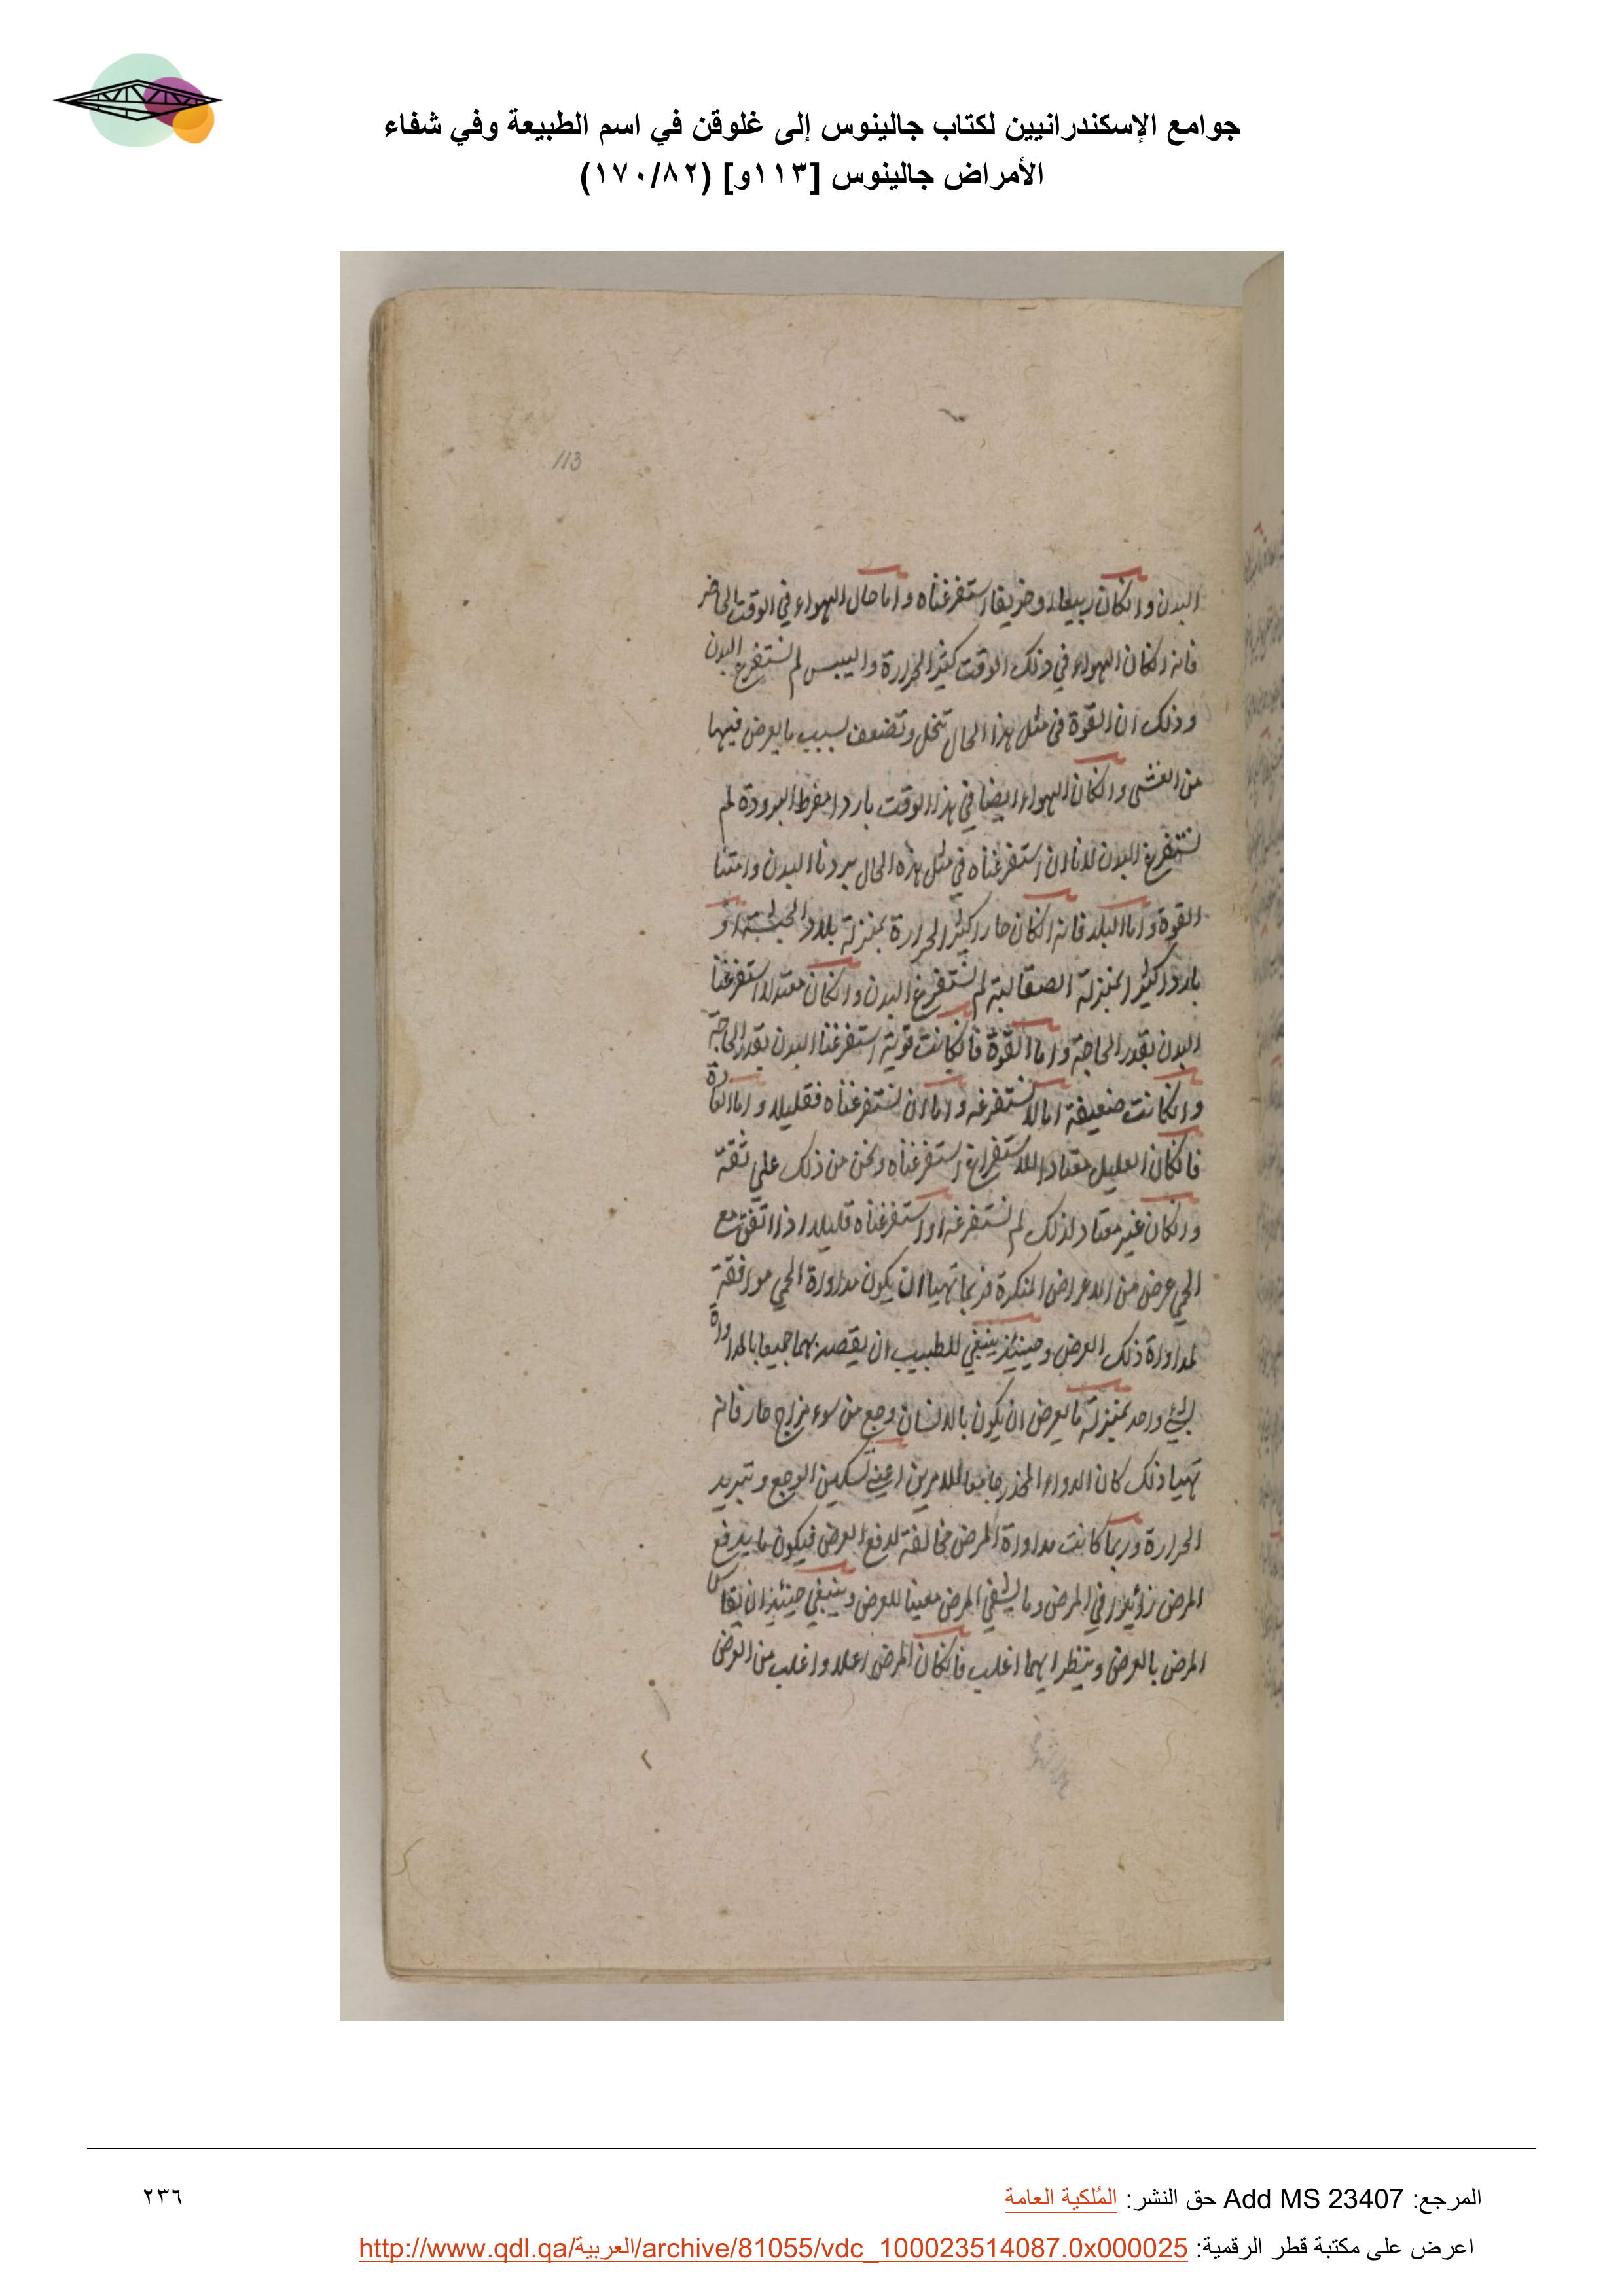 جوامع الإسكندرانيين لكتاب جالينوس إلى غلوقن في اسم الطبيعة وفي شفاء
الأمراض جالينوس [١١٣و] (١٧٠/٨٢)
113
البدن وان كان ربيعا او خريفا استفرغناه واما حال الهواء في الوقت الحاضر
فانه ان كان الهواء في ذلك الوقت كثير الحرارة واليبس لم نستفرغ البدن
وذلك ان القوة في مثل هذا الحال تنحل وتضعف لسبب ما يعرض فيها
من الغشى وان كان الهواء ايضا في هذا الوقت باردا مفرط البرودة لم
نستفرغ البدن لانا ان استفرغناه في مثل هذه الحال بردنا البدن وامتنا
القوة واما البلد فانه ان كان حارا كثير الحرارة بمنزلة بلاد الحبشة او
باردا كثيرا بمنزلة الصقالبة لم نستفرغ البدن وان كان معتدلا استفرغنا
البدن بقدر الحاجة واما القوة فان كانت قوية استفرغنا البدن بقدر الحاجة
وان كانت ضعيفة اما لا نستفرغه واما ان نستفرغناه فقليلا واما العادة
فان كان العليل معتادا للاستفراغ استفرغناه ونحن من ذلك على ثقة
وان كان غير معتاد لذلك لم نستفرغه او استفرغناه قليلا اذا اتفق مع
الحمى عرض من الاعراض المنكرة فربما تهيا ان يكون مداواة الحمى موافقة
لمداواة ذلك العرض وحينئذ ينبغي للطبيب ان يقصد بهما جميعا بالمداواة
لشئ واحد بمنزلة ما يعرض ان يكون بالانسان وجع من سوء مزاج حار فانه
تهيا ذلك كان الدواء المخدر جامعا للامرين اعني تسكين الوجع وتبريد
الحرارة وربما كانت مداواة المرض مخالفة لدفع العرض فيكون ما يدفع
المرض زائدا في المرض وما يشفي المرض معينا للعرض وينبغي حينئذ ان يقاس
المرض بالعرض وينظر ايهما اغلب فان كان المرض اعلا واغلب من العرض
المرجع: Add MS 23407 حق النشر: المُلكية العامة
٢٣٦
اعرض على مكتبة قطر الرقمية: http://www.qdl.qa/العربية/archive/81055/vdc_100023514087.0x000025